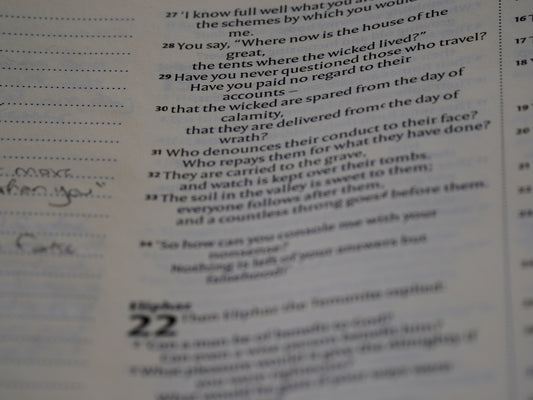 27 'I know full well what you are
the schemes by which you would
me.
28 You say, "Where now is the house of the
great,
the tents where the wicked lived?"
29 Have you never questioned those who travel?
Have you paid no regard to their
accounts –
30 that the wicked are spared from the day of
calamity,
that they are delivered from the day of
wrath?
31 Who denounces their conduct to their face?
Who repays them for what they have done?
32 They are carried to the grave,
and watch is kept over their tombs.
33 The soil in the valley is sweet to them;
everyone follows after them,
and a countless throng goes before them.
34 'So how can you console me with your
nonsense?
Nothing is left of your answers but
falsehood!'
Eliphaz
22 Then Eliphaz the Temanite replied:
2 'Can a man be of benefit to God?
Can even a wise person benefit him?
3 What pleasure would it give the Almighty if
you were righteous?
What would he gain if your ways were
when you"
16
17
18
19
20
21